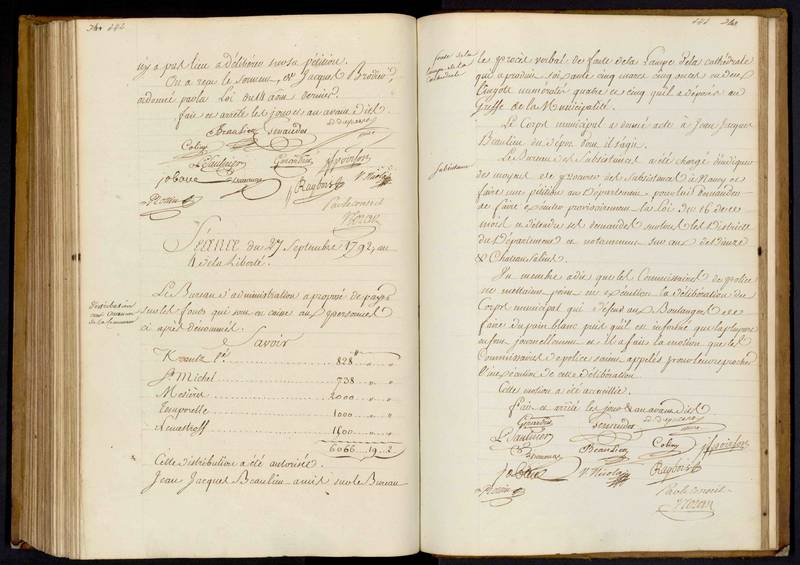 242
n'y a pas lieu a délibérer sur sa pétition.
On a reçu le serment, de Jacques
ordonné par la Loi du 14 aout dernier.
fait et arrêté les jour et an avant dits.
Beaulieu Senaudes
Coliny
L. Saulnier Gerardin ffpoinson
jobart Raybois V. Nicolas
Rollin
Par le conseil
Rozan
Séance du 27 Septembre 1792, an
4 de la Liberté.
Distribution
aux
de la Commune
Le Bureau d'administration a proposé de payer
sur les fonds qui sont en caisse aux personnes
ci après dénommées.
Savoir
Krantz 828 " "
St Michel 738 " "
Mesieres 2000 " "
Temporelle 1000 " "
1500 " "
6066 19 2
Cette distribution a été autorisée.
Jean Jacques Beaulieu a mis sur le Bureau
242
fonte de la
Lampe de la
Cathédrale
le procès verbal de fonte de la Lampe de la cathédrale
qui a produit soixante cinq marcs cinq onces en deux
Lingots numérotés quatre et cinq qu'il a déposés au
Greffe de la Municipalité.
Le Corps municipal a donné acte à Jean Jacques
Beaulieu du dépôt dont il s'agit.
Subsistances
Le Bureau des Subsistances a été chargé d'indiquer
des moyens de procurer des Subsistances à Nancy et
faire une pétition au Département pour lui demander
de faire exécuter provisoirement la loi du 16 de ce
mois et d'étendre ses demandes sur tous les Districts
du Département et notamment sur ceux de Dieuze
& Chateau Salins.
Un membre a dit que les Commissaires de police
ne mettaient point en exécution la délibération du
Corps municipal qui défend aux Boulangers de
faire du pain blanc puisqu'il est informé que la plupart
en font journellement et il a fait la motion que les
Commissaires de police soient appelés pour leur reprocher
l'inexécution de cette délibération
Cette motion a été accueillie.
Fait et arrêté les jour & an avant dits
Gerardin Senaudes
L. Saulnier Beaulieu Coliny ffpoinson
jobart V. Nicolas Raybois
Rollin
Par le Conseil
Rozan